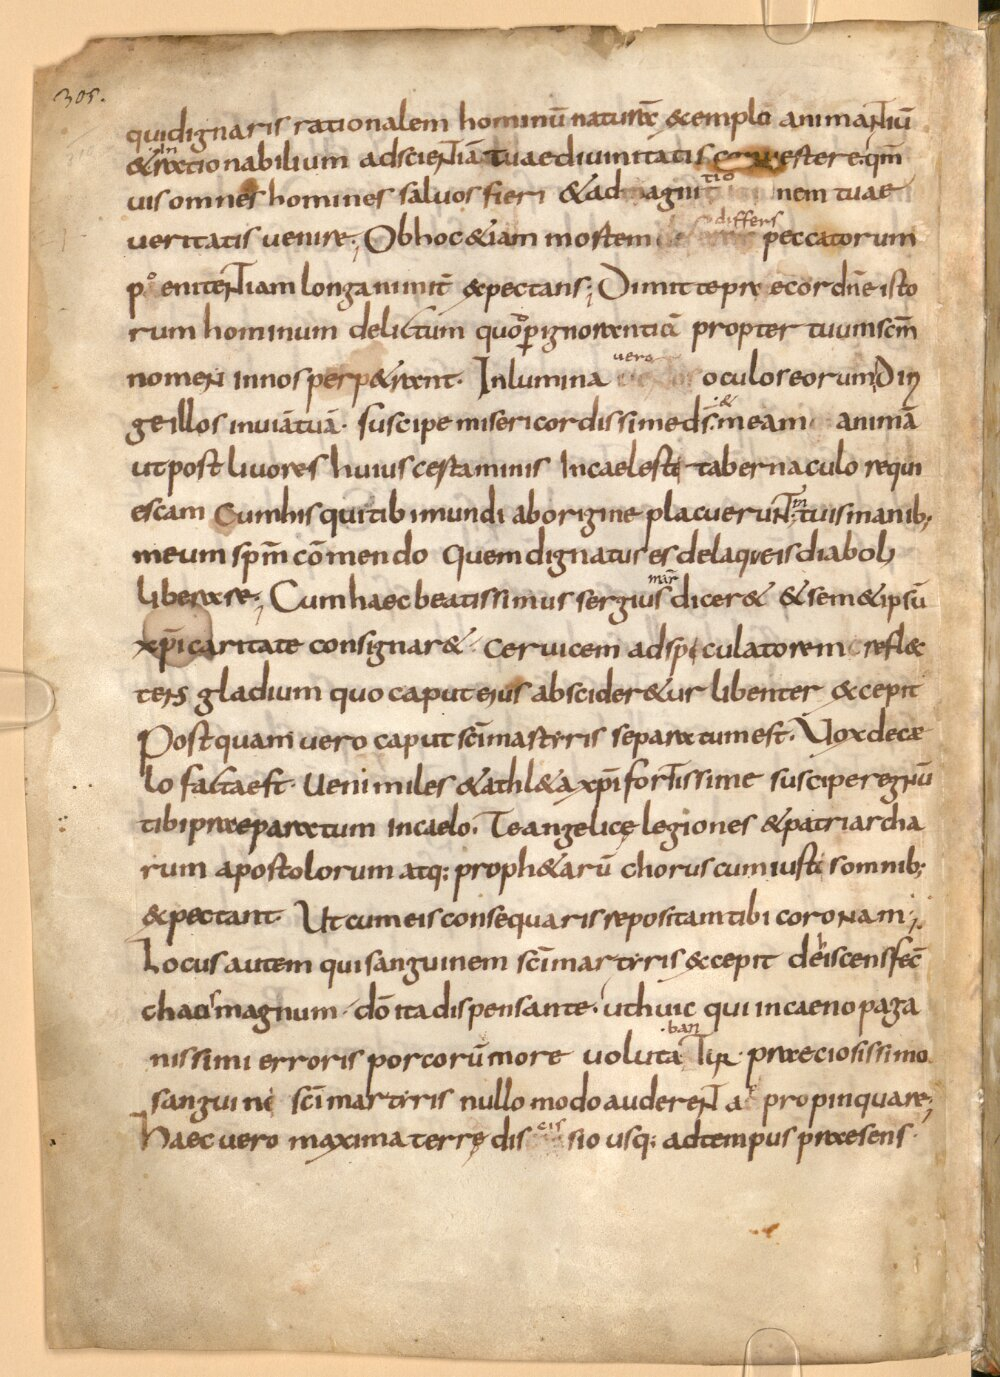 305.
qui dignaris rationalem hominū naturæ exemplo animantiū
& inrationabilium ad scientiā tuae diuinitatis conuertere. qm̄
uis omnes homines saluos fieri & ad agnitionem tuae
ueritatis uenire; Ob hoc & iam mortem differs peccatorum
pͦenitentiam longanimit̄ expectans; Dimitte prece cordn̄e isto
rum hominum delictum quod p ignorantiā propter tuum scm̄
nomen in nos perpetrant. Inlumina uero oculos eorum & diri
ge illos in uiā tuā. suscipe misericordissime ds̄. & meam animā
ut post liuores huius certaminis In caelesti tabernaculo requi
escam Cum his qui tibi mundi ab origine placuerunt; in tuis manib;
meum spm̄ cōmendo Quem dignatus es de laqueis diaboli
liberare; Cum haec beatissimus sergius mar̄ dicer& & sem&ipsū
xp̄i caritate consignar& ceruicem ad speculatorem refle
tens gladium quo caput eius abscider&ur libenter excepit
Postquam uero caput scī martyris separatum est. Vox de cæ
lo facta est. Ueni miles & athl&a xp̄i fortissime suscipe regnū
tibi præparatum in caelo. Te angelicę legiones & patriarcha
rum apostolorum atq: proph&arū chorus cum iustis omnib;
expectant. Ut cum eis consequaris repositam tibi coronam;
Locus autem qui sanguinem scī martyris excepit dehiscens fec̄
chaos magnum. dō ita dispensante. ut huic qui in caeno paga
nissimi erroris porcorū more uolutabantur. præciosissimo
sanguini scī martyris nullo modo auderent appropinquare;
Haec uero maxima terrę discissio usq: ad tempus præsens.